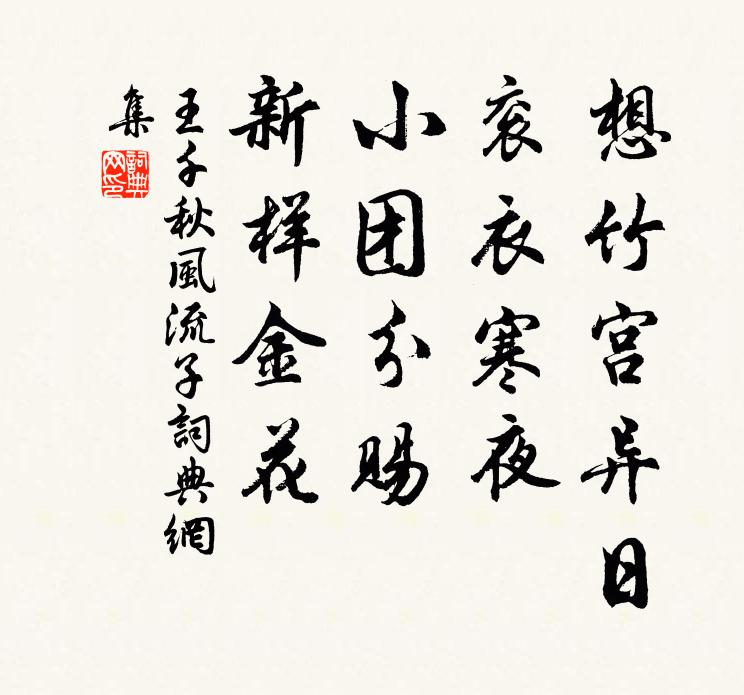 想竹宫异日
衮衣寒夜
小团分赐
新样金花
王千秋風流子詞典網
集
詞典網印